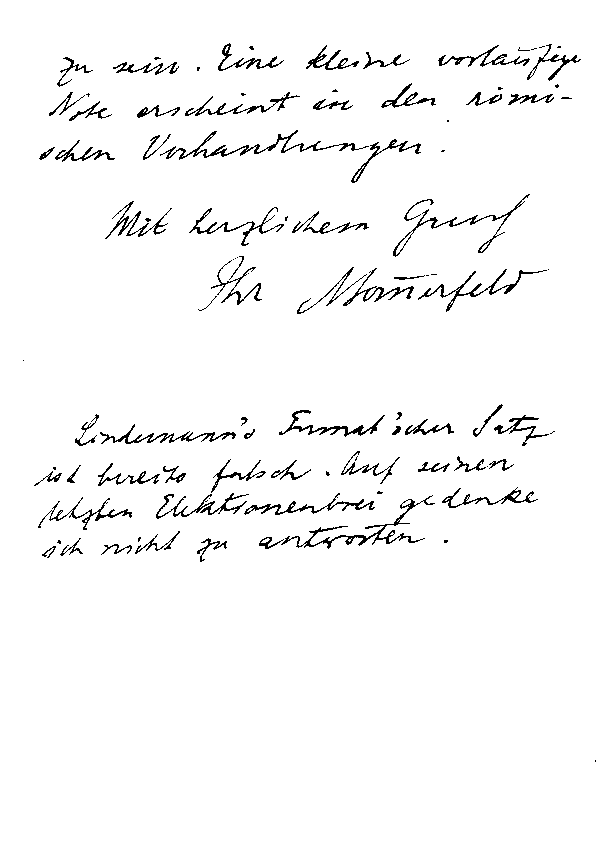 zu sein. Eine kleine vorläufige
Note erscheint in den römi-
schen Verhandlungen.
Mit herzlichem Gruß
Ihr ASommerfeld
Lindemann's Fermat'scher Satz
ist bereits falsch. Auf seinen
letzten Elektronenbrei gedenke
ich nicht zu antworten.